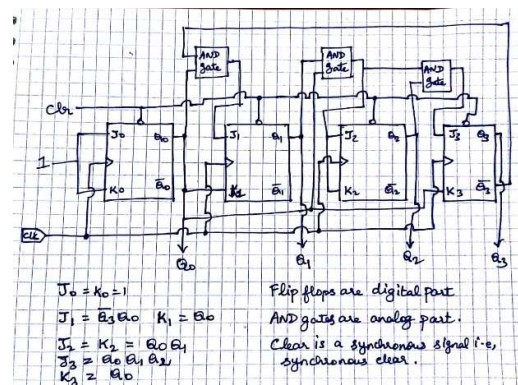 AND gate
AND gate
AND gate
Clr
J0 Q0
J1 Q1
J2 Q2
J3 Q3
1
K0 Q̅0
K1 Q̅1
K2 Q̅2
K3 Q̅3
Clk
Q0
Q1
Q2
Q3
J0 = K0 = 1
J1 = Q̅3 Q0 K1 = Q0
J2 = K2 = Q0 Q1
J3 = Q0 Q1 Q2
K3 = Q0
Flip flops are digital part
AND gates are analog part.
Clear is a synchronous signal i-e,
synchronous clear.